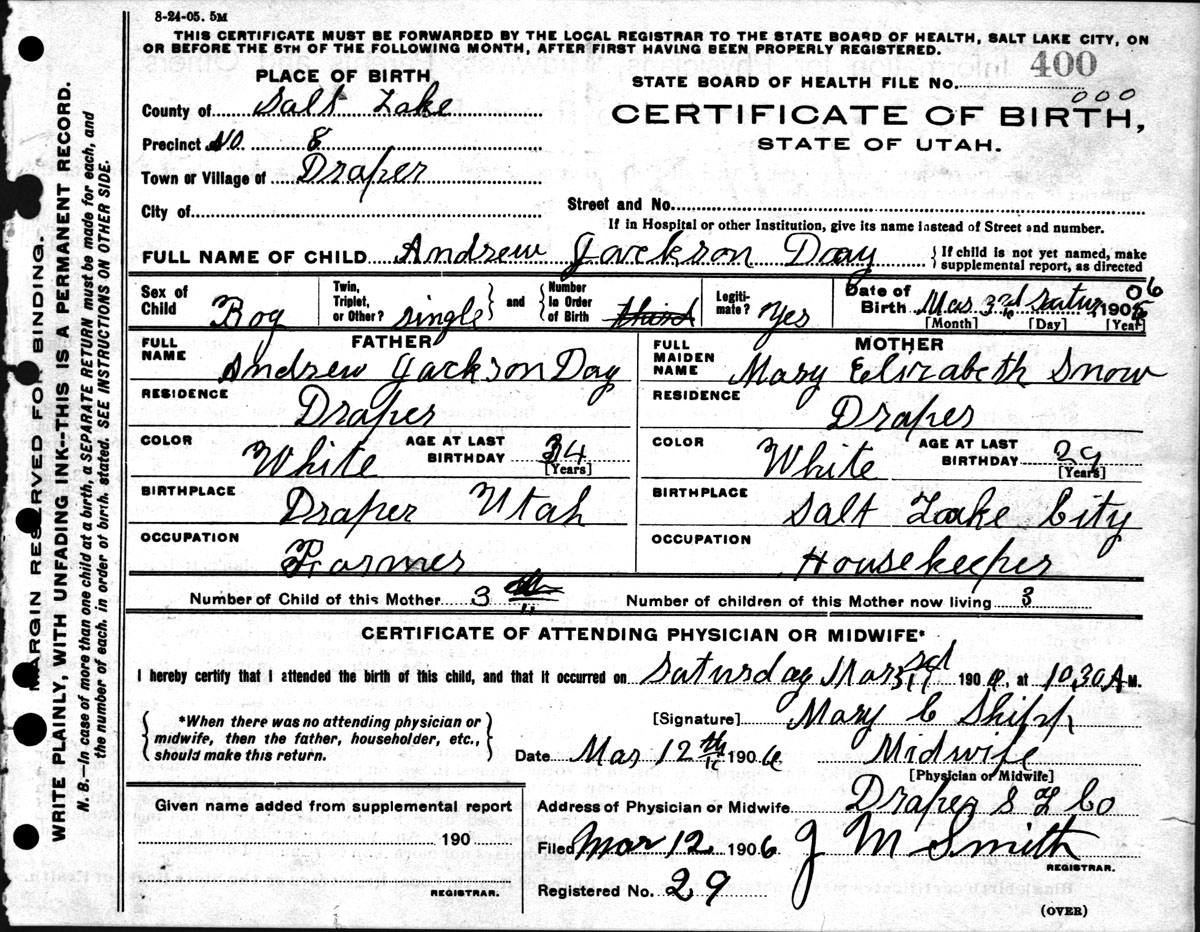 8-24-05. 5M
THIS CERTIFICATE MUST BE FORWARDED BY THE LOCAL REGISTRAR TO THE STATE BOARD OF HEALTH, SALT LAKE CITY, ON
OR BEFORE THE 5TH OF THE FOLLOWING MONTH, AFTER FIRST HAVING BEEN PROPERLY REGISTERED.
PLACE OF BIRTH,
STATE BOARD OF HEALTH FILE No. 400
000
County of Salt Lake
CERTIFICATE OF BIRTH,
Precinct No. 8
STATE OF UTAH.
Town or Village of Draper
City of
Street and No.
If in Hospital or other Institution, give its name instead of Street and number.
FULL NAME OF CHILD Andrew Jackson Day
If child is not yet named, make
supplemental report, as directed
Sex of Child Boy
Twin, Triplet, or Other? single
and
Number In Order of Birth third
Legiti-mate? Yes
Date of Birth Mar 3rd Satur 1906
[Month] [Day] [Year]
FATHER
FULL NAME Andrew Jackson Day
RESIDENCE Draper
COLOR White
AGE AT LAST BIRTHDAY 34
[Years]
BIRTHPLACE Draper Utah
OCCUPATION Farmer
MOTHER
FULL MAIDEN NAME Mary Elizabeth Snow
RESIDENCE Draper
COLOR White
AGE AT LAST BIRTHDAY 29
[Years]
BIRTHPLACE Salt Lake City
OCCUPATION Housekeeper
Number of Child of this Mother 3
Number of children of this Mother now living 3
CERTIFICATE OF ATTENDING PHYSICIAN OR MIDWIFE*
I hereby certify that I attended the birth of this child, and that it occurred on Saturday Mar 3rd 190, at 10,30 A M.
*When there was no attending physician or
midwife, then the father, householder, etc.,
should make this return.
[Signature] Mary C Shipp
Date Mar 12th 1906 Midwife
[Physician or Midwife]
Address of Physician or Midwife Draper S L Co
Given name added from supplemental report
190
REGISTRAR.
Filed Mar 12 1906 J M Smith
REGISTRAR.
Registered No. 29
(OVER)
MARGIN RESERVED FOR BINDING.
WRITE PLAINLY, WITH UNFADING INK--THIS IS A PERMANENT RECORD.
N. B.—In case of more than one child at a birth, a SEPARATE RETURN must be made for each, and
the number of each, in order of birth, stated. SEE INSTRUCTIONS ON OTHER SIDE.